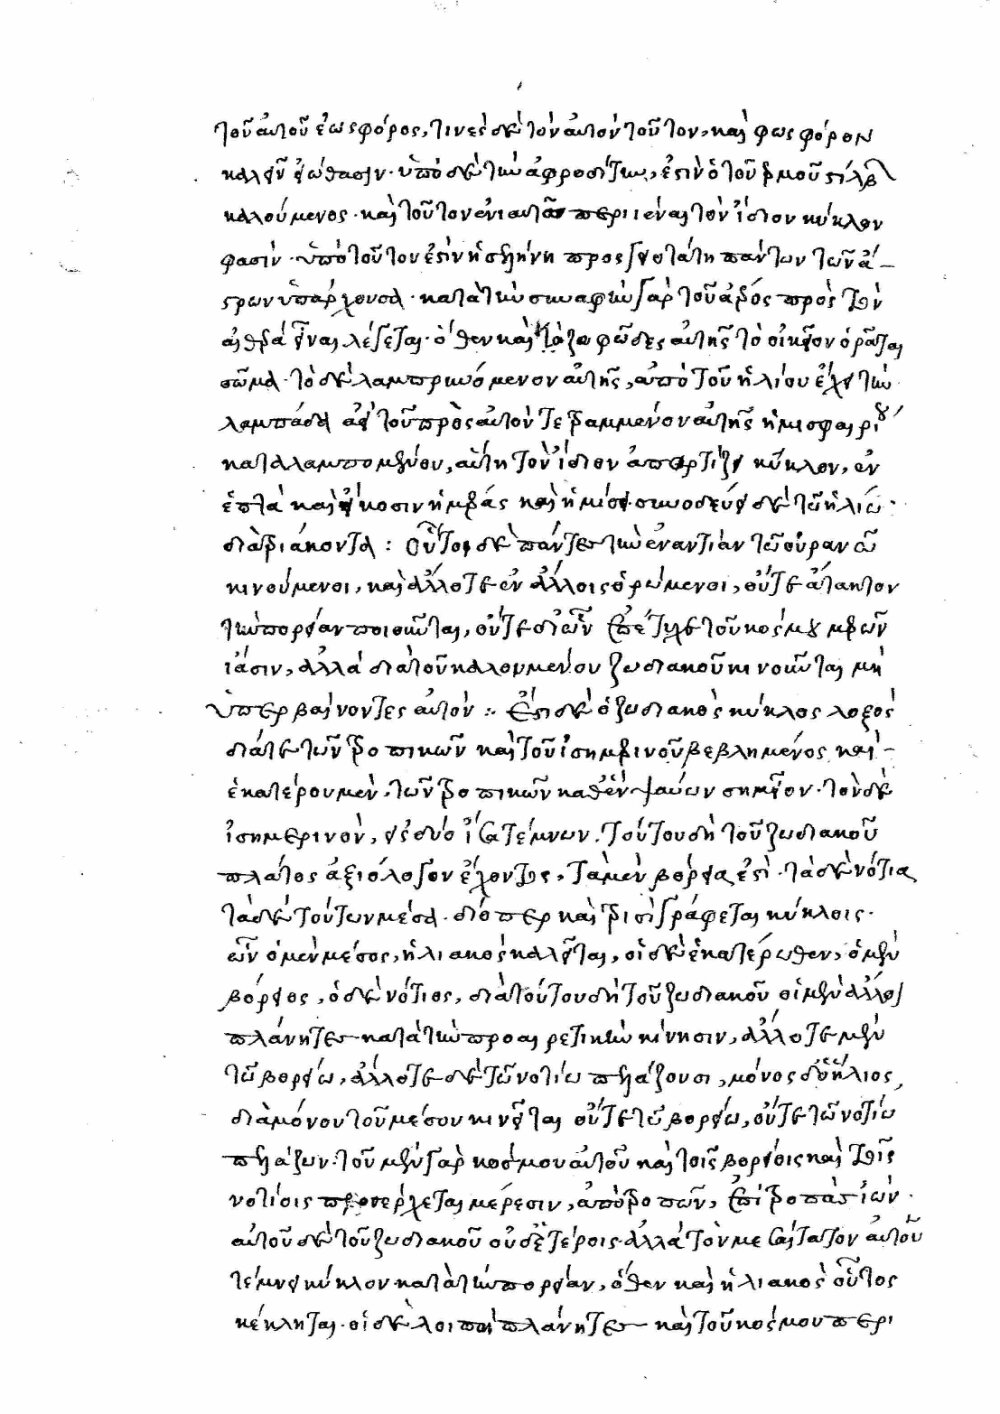 τοῦ αὐτοῦ ἑωσφόρος, τινὲς δὲ τὸν αὐτὸν τοῦτον, καὶ φωσφόρον
καλεῖν εἰώθασιν· ὑπὸ δὲ τὴν ἀφροδίτην, ἐστὶν ὁ τοῦ ἑρμοῦ στίλβων
καλούμενος· καὶ τοῦτον ἐνιαυτῷ περιιέναι τὸν ἴδιον κύκλον
φασίν· ὑπὸ τοῦτον ἐστὶν ἡ σελήνη προσγειοτάτη πάντων τῶν ἀ-
στρων ὑπάρχουσα· κατὰ τὴν συναφὴν γὰρ τοῦ ἀέρος πρὸς τὸν
αἰθέρα εἶναι λέγεται· ὅθεν καὶ τὸ ζοφῶδες αὐτῆς τὸ οἰκεῖον ὁρᾶται
σῶμα· τὸ δὲ λαμπρυνόμενον αὐτῆς, ἀπὸ τοῦ ἡλίου ἔχει τὴν
λαμπάδα ἀεὶ τοῦ πρὸς αὐτὸν τετραμμένον αὐτῆς ἡμισφαιρίου
καταλαμπομένου, αὕτη τὸν ἴδιον ἀπαρτίζει κύκλον, ἐν
ἑπτὰ καὶ εἴκοσιν ἡμέραις καὶ ἡμίσει· συνοδεύει δὲ τῷ ἡλίῳ
διὰ τριάκοντα : Οὗτοι δὲ πάντες τὴν ἐναντίαν τῷ οὐρανῷ
κινούμενοι, καὶ ἄλλοτε ἐν ἄλλοις ὁρώμενοι, οὔτε ἄτακτον
τὴν πορείαν ποιοῦνται, οὔτε δι' ὧν ἐπέτυχε τοῦ κόσμου μερῶν
ἴασιν, ἀλλὰ διὰ τοῦ καλουμένου ζωδιακοῦ κινοῦνται μὴ
ὑπερβαίνοντες αὐτόν :· Ἔστι δὲ ὁ ζωδιακὸς κύκλος λοξὸς
διά τε τῶν τροπικῶν καὶ τοῦ ἰσημερινοῦ βεβλημένος καὶ-
ἑκατέρου μὲν, τῶν τροπικῶν καθ' ἓν ψαύων σημεῖον· τὸν δὲ
ἰσημερινὸν, εἰς δύο ἴσα τέμνων. Τούτου δὴ τοῦ ζωδιακοῦ
πλάτος ἀξιόλογον ἔχοντος, τὰ μὲν βόρεια ἐστὶ· τὰ δὲ νότια
τὰ δὲ τούτων μέσα· διόπερ καὶ τρισὶ γράφεται κύκλοις·
ὧν ὁ μὲν μέσος, ἡλιακὸς καλεῖται, οἱ δὲ ἑκατέρωθεν, ὁ μὲν
βόρειος, ὁ δὲ νότιος, διὰ τούτου δὴ τοῦ ζωδιακοῦ οἱ μὲν ἄλλοι
πλάνητες κατὰ τὴν προαιρετικὴν κίνησιν, ἄλλοτε μὲν
τῷ βορείῳ, ἄλλοτε δὲ τῷ νοτίῳ πελάζουσι, μόνος δὲ ὁ ἥλιος,
διὰ μόνου τοῦ μέσου κινεῖται οὔτε τῷ βορείῳ, οὔτε τῷ νοτίῳ
πελάζων· τοῦ μὲν γὰρ κόσμου αὐτοῦ καὶ τοῖς βορείοις καὶ τοῖς
νοτίοις προσέρχεται μέρεσιν, ἀπὸ τροπῶν, ἐπὶ τροπὰς ἰών·
αὐτοῦ δὲ τοῦ ζωδιακοῦ οὐδετέροις· ἀλλὰ τὸν μεσαίτατον αὐτοῦ
τέμνει κύκλον κατὰ τὴν πορείαν, ὅθεν καὶ ἡλιακὸς οὗτος
κέκληται· οἱ δὲ λοιποὶ πλάνητες καὶ τοῦ κόσμου περι